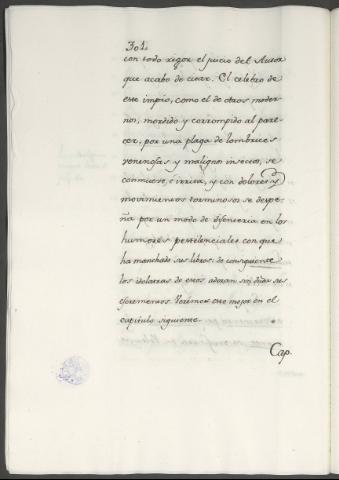 304.
con todo rigor el juicio del Autor
que acabo de citar. El celebro de
este impio, como el de otros moder-
nos, mordido y corrompido al pare-
cer, por una plaga de lombrices
venenosas y malignos insectos, se
conmueve, è irrita, y con dolores y
movimientos torminosos se despe-
ña por un modo de disenteria en los
humores pestilenciales con que
ha manchado sus libros: de consiguiente
los idolatras de estos adoran sin duda sus
escrementos. Veremos esto mejor en el
capitulo siguiente.
Cap.